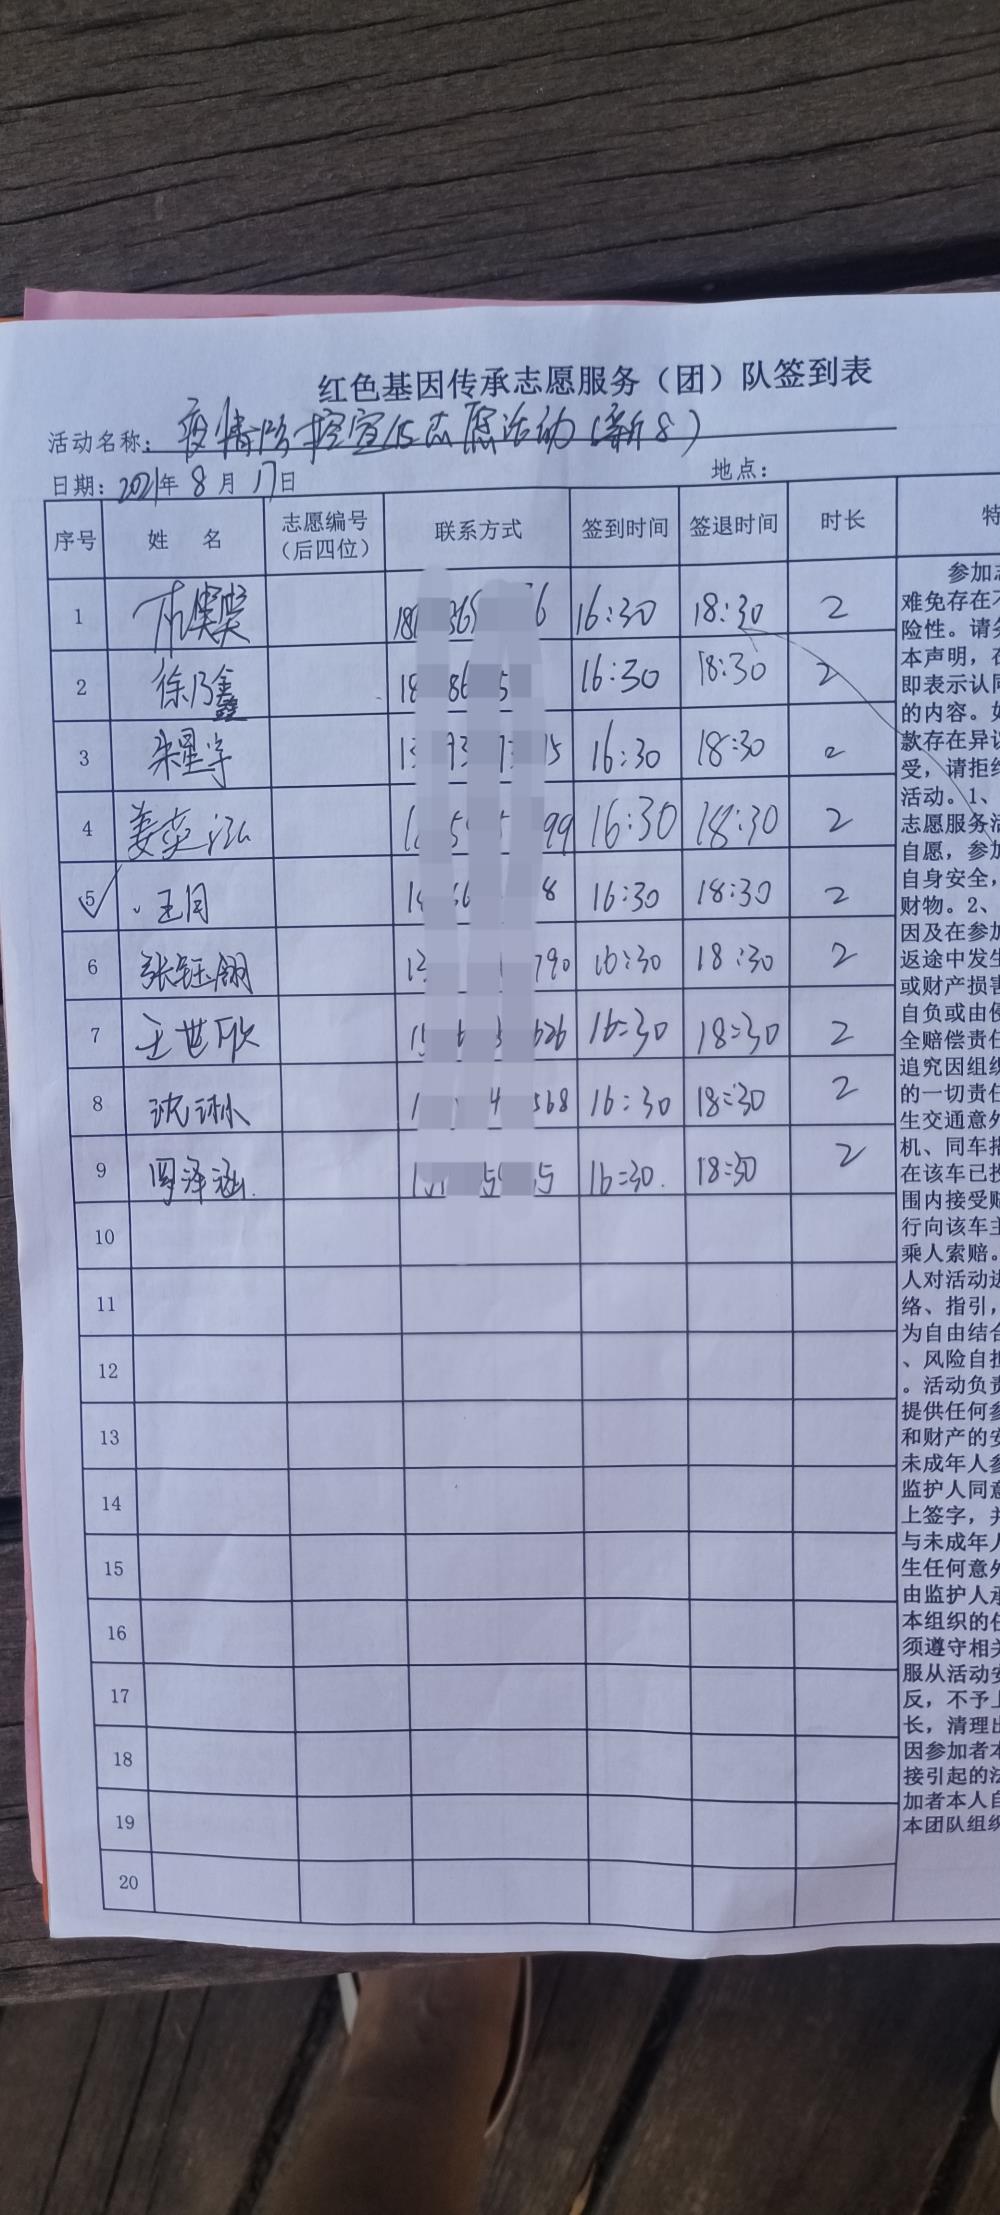 红色基因传承志愿服务（团）队签到表
活动名称：疫情防控宣传志愿活动（新8）
日期：2021年8月17日 地点：
序号 姓 名 志愿编号（后四位） 联系方式 签到时间 签退时间 时长 特
1 16:30 18:30 2
2 徐乃鑫 16:30 18:30 2
3 朱星宇 16:30 18:30 2
4 姜奕泓 16:30 18:30 2
5 王月 16:30 18:30 2
6 张钰翎 16:30 18:30 2
7 王世欣 16:30 18:30 2
8 沈沐 16:30 18:30 2
9 周泽涵. 16:30. 18:30 2
10
11
12
13
14
15
16
17
18
19
20
参加志
难免存在不
险性。请务
本声明，在
即表示认同
的内容。如
款存在异议
受，请拒绝
活动。1、
志愿服务活
自愿，参加
自身安全，
财物。2、
因及在参加
返途中发生
或财产损害
自负或由侵
全赔偿责任
追究因组织
的一切责任
生交通意外
机、同车搭
在该车已投
围内接受赔
行向该车主
乘人索赔。
人对活动进
络、指引，
为自由结合
、风险自担
。活动负责
提供任何参
和财产的安
未成年人参
监护人同意
上签字，并
与未成年人
生任何意外
由监护人承
本组织的任
须遵守相关
服从活动安
反，不予上
长，清理出
因参加者本
接引起的法
加者本人自
本团队组织